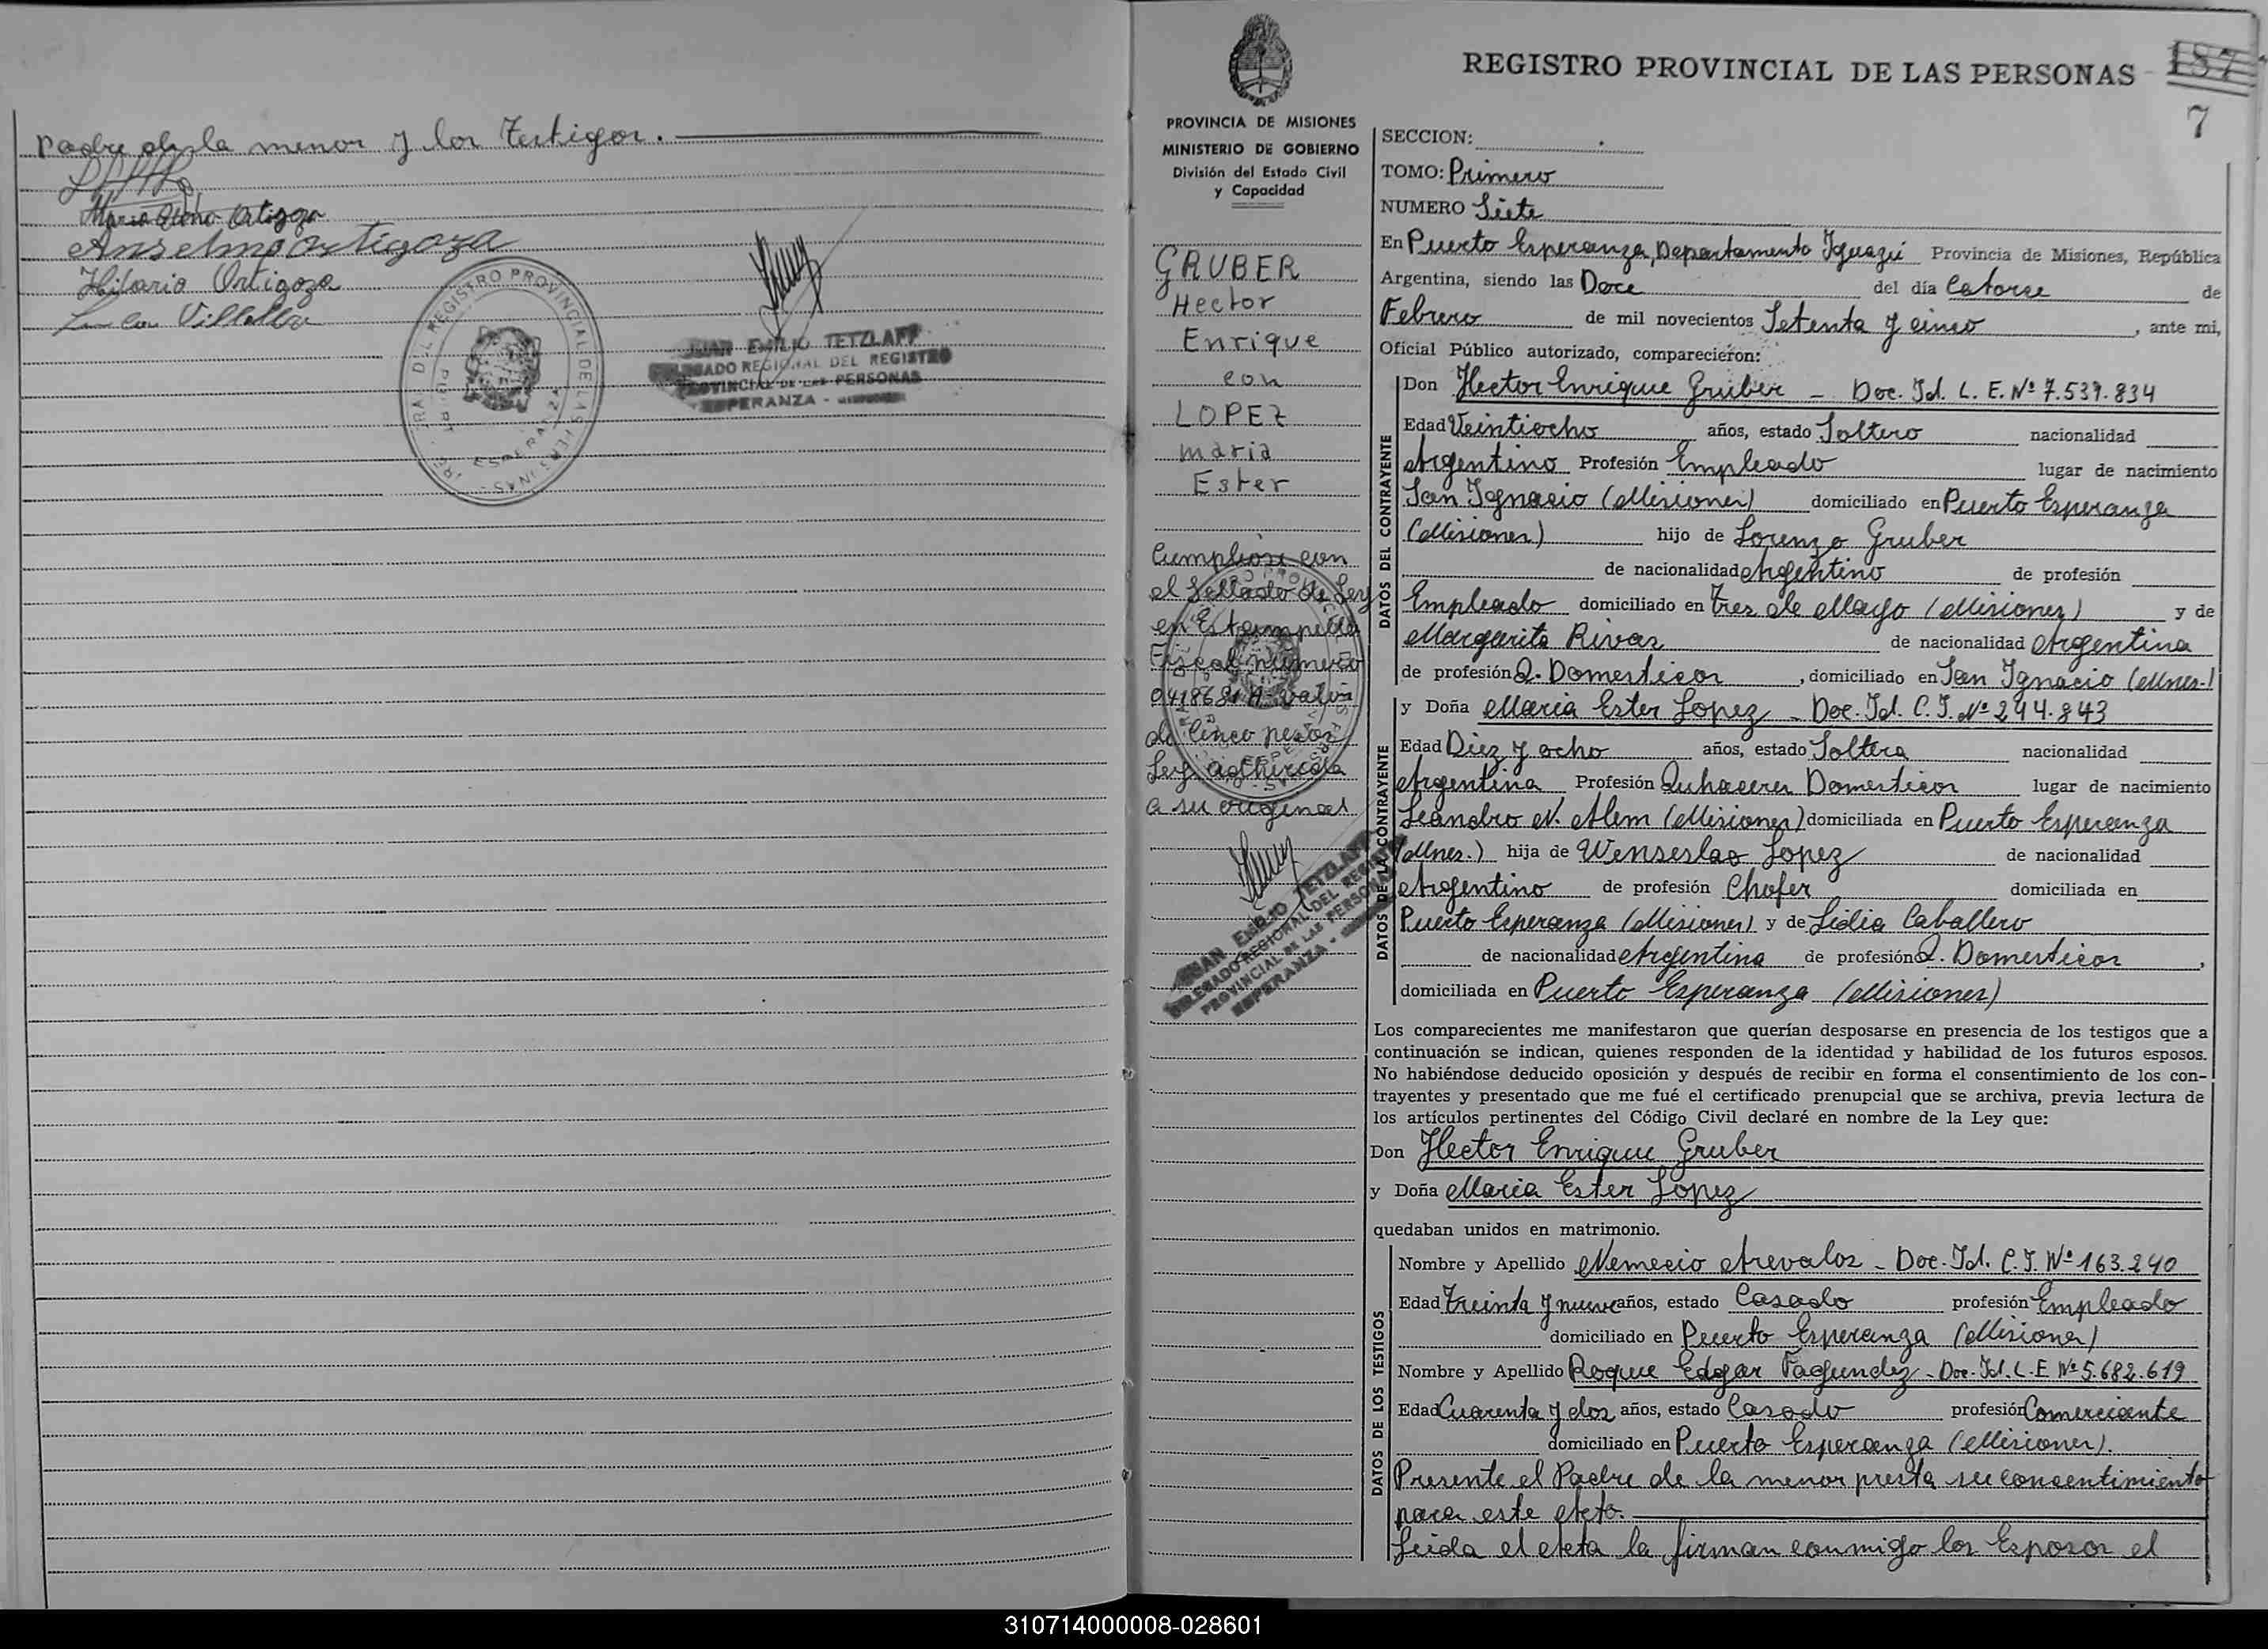 Padre de la menor y los Testigos.
Maria Elena Ortigoza
Anselmo Ortigoza
Hilario Ortigoza
Villalba
REGISTRO PROVINCIAL DE LAS PERSONAS
ESPERANZA
JUAN EMILIO TETZLAFF
DELEGADO REGIONAL DEL REGISTRO
PROVINCIAL DE LAS PERSONAS
ESPERANZA -
REGISTRO PROVINCIAL DE LAS PERSONAS
187
7
PROVINCIA DE MISIONES
MINISTERIO DE GOBIERNO
División del Estado Civil
y Capacidad
GRUBER
Hector
Enrique
con
LOPEZ
maria
Ester
Cumpliose con
el Sellado de Ley
en Estampilla
Fiscal número
valor
de Cinco pesos
Ley adherida
a su original
JUAN EMILIO TETZLAFF
DELEGADO REGIONAL DEL REGISTRO
PROVINCIAL DE LAS PERSONAS
ESPERANZA -
SECCION:
TOMO: Primero
NUMERO Siete
En Puerto Esperanza, Departamento Iguazú Provincia de Misiones, República
Argentina, siendo las Doce del día Catorse de
Febrero de mil novecientos Setenta y cinco, ante mi,
Oficial Público autorizado, comparecieron:
DATOS DEL CONTRAYENTE
Don Hector Enrique Gruber - Doc. Id. L. E. Nº 7.537.834
Edad Veintiocho años, estado Soltero nacionalidad
Argentino Profesión Empleado lugar de nacimiento
San Ignacio (Misiones) domiciliado en Puerto Esperanza
(Misiones) hijo de Lorenzo Gruber
de nacionalidad Argentino de profesión
Empleado domiciliado en Tres de Mayo (Misiones) y de
Margarita Rivas de nacionalidad Argentina
de profesión Q. Domesticos, domiciliado en San Ignacio (Mnes.)
DATOS DE LA CONTRAYENTE
y Doña Maria Ester Lopez - Doc. Id. C. I. Nº 244.843
Edad Diez y ocho años, estado Soltera nacionalidad
Argentina Profesión Quhaceres Domesticos lugar de nacimiento
Leandro N. Alem (Misiones) domiciliada en Puerto Esperanza
(Mnes.) hija de Wenseslao Lopez de nacionalidad
Argentino de profesión Chofer domiciliada en
Puerto Esperanza (Misiones) y de Lidia Caballero
de nacionalidad Argentina de profesión Q. Domesticos,
domiciliada en Puerto Esperanza (Misiones)
Los comparecientes me manifestaron que querían desposarse en presencia de los testigos que a
continuación se indican, quienes responden de la identidad y habilidad de los futuros esposos.
No habiéndose deducido oposición y después de recibir en forma el consentimiento de los con-
trayentes y presentado que me fué el certificado prenupcial que se archiva, previa lectura de
los artículos pertinentes del Código Civil declaré en nombre de la Ley que:
Don Hector Enrique Gruber
y Doña Maria Ester Lopez
quedaban unidos en matrimonio.
DATOS DE LOS TESTIGOS
Nombre y Apellido Nemecio Arevalos - Doc. Id. C. I. Nº 163.240
Edad Treinta y nueve años, estado Casado profesión Empleado
domiciliado en Puerto Esperanza (Misiones)
Nombre y Apellido Roque Edgar Fagundez - Doc. Id. L. E Nº 5.682.619
Edad Cuarenta y dos años, estado Casado profesión Comerciante
domiciliado en Puerto Esperanza (Misiones).
Presente el Padre de la menor presta su consentimiento
para este acto.
Leida el Acta la firman conmigo los Esposos el
310714000008-028601